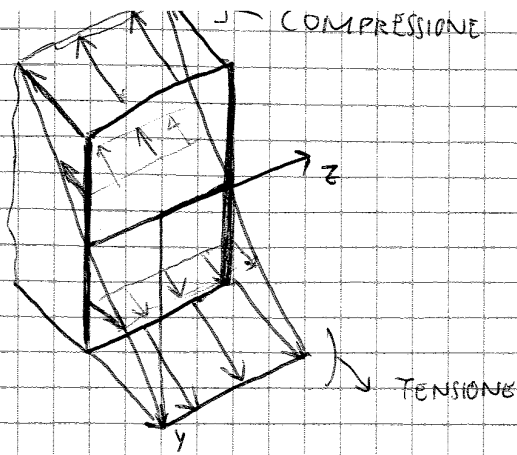 COMPRESSIONE
z
TENSIONE
y